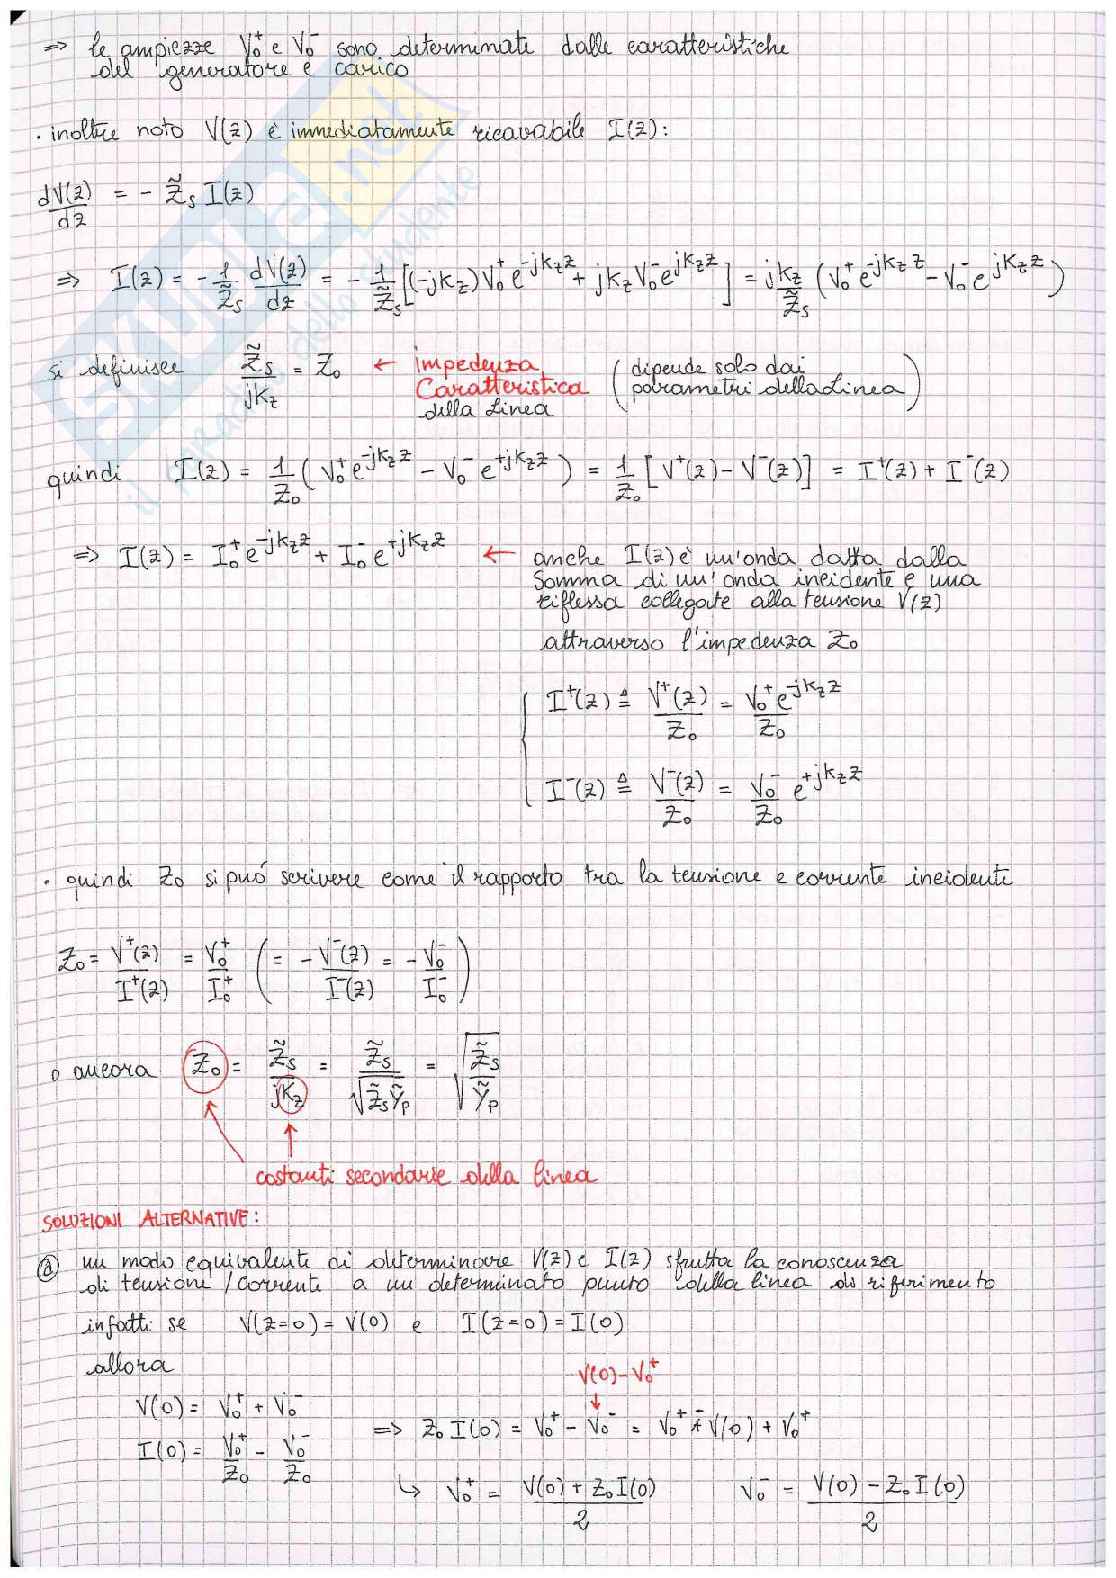 => le ampiezze V₀⁺ e V₀⁻ sono determinate dalle caratteristiche
del generatore e carico
· inoltre noto V(z) è immediatamente ricavabile I(z):
dV(z)/dz = - Z̃s I(z)
=> I(z) = - 1/Z̃s dV(z)/dz = - 1/Z̃s [(-jKz)V₀⁺e^{-jKz z} + jKz V₀⁻e^{jKz z}] = jKz/Z̃s (V₀⁺e^{-jKz z} - V₀⁻e^{jKz z})
si definisce Z̃s/jKz = Z₀ ← impedenza Caratteristica della Linea (dipende solo dai parametri della Linea)
quindi I(z) = 1/Z₀ (V₀⁺e^{-jKz z} - V₀⁻e^{+jKz z}) = 1/Z₀ [V⁺(z) - V⁻(z)] = I⁺(z) + I⁻(z)
=> I(z) = I₀⁺e^{-jKz z} + I₀⁻e^{+jKz z} ← anche I(z) è un'onda datta dalla
Somma di un'onda incidente e una
riflessa collegate alla tensione V(z)
attraverso l'impedenza Z₀
I⁺(z) ≜ V⁺(z)/Z₀ = V₀⁺e^{-jKz z}/Z₀
I⁻(z) ≜ V⁻(z)/Z₀ = V₀⁻/Z₀ e^{+jKz z}
· quindi Z₀ si può scrivere come il rapporto tra la tensione e corrente incidenti
Z₀ = V⁺(z)/I⁺(z) = V₀⁺/I₀⁺ (= - V⁻(z)/I⁻(z) = - V₀⁻/I₀⁻)
o ancora Z₀ = Z̃s/jKz = Z̃s/√(Z̃s Ỹp) = √(Z̃s/Ỹp)
costanti secondarie della linea
SOLUZIONI ALTERNATIVE:
ⓐ un modo equivalente di determinare V(z) e I(z) sfrutta la conoscenza
di tensione/corrente a un determinato punto della linea di riferimento
infatti se V(z=0) = V(0) e I(z=0) = I(0)
allora
V(0) - V₀⁺
V(0) = V₀⁺ + V₀⁻
I(0) = V₀⁺/Z₀ - V₀⁻/Z₀ => Z₀ I(0) = V₀⁺ - V₀⁻ = V₀⁺ - V(0) + V₀⁺
↳ V₀⁺ = (V(0) + Z₀ I(0))/2 V₀⁻ = (V(0) - Z₀ I(0))/2
SKUOLA.net
il paradiso dello studente